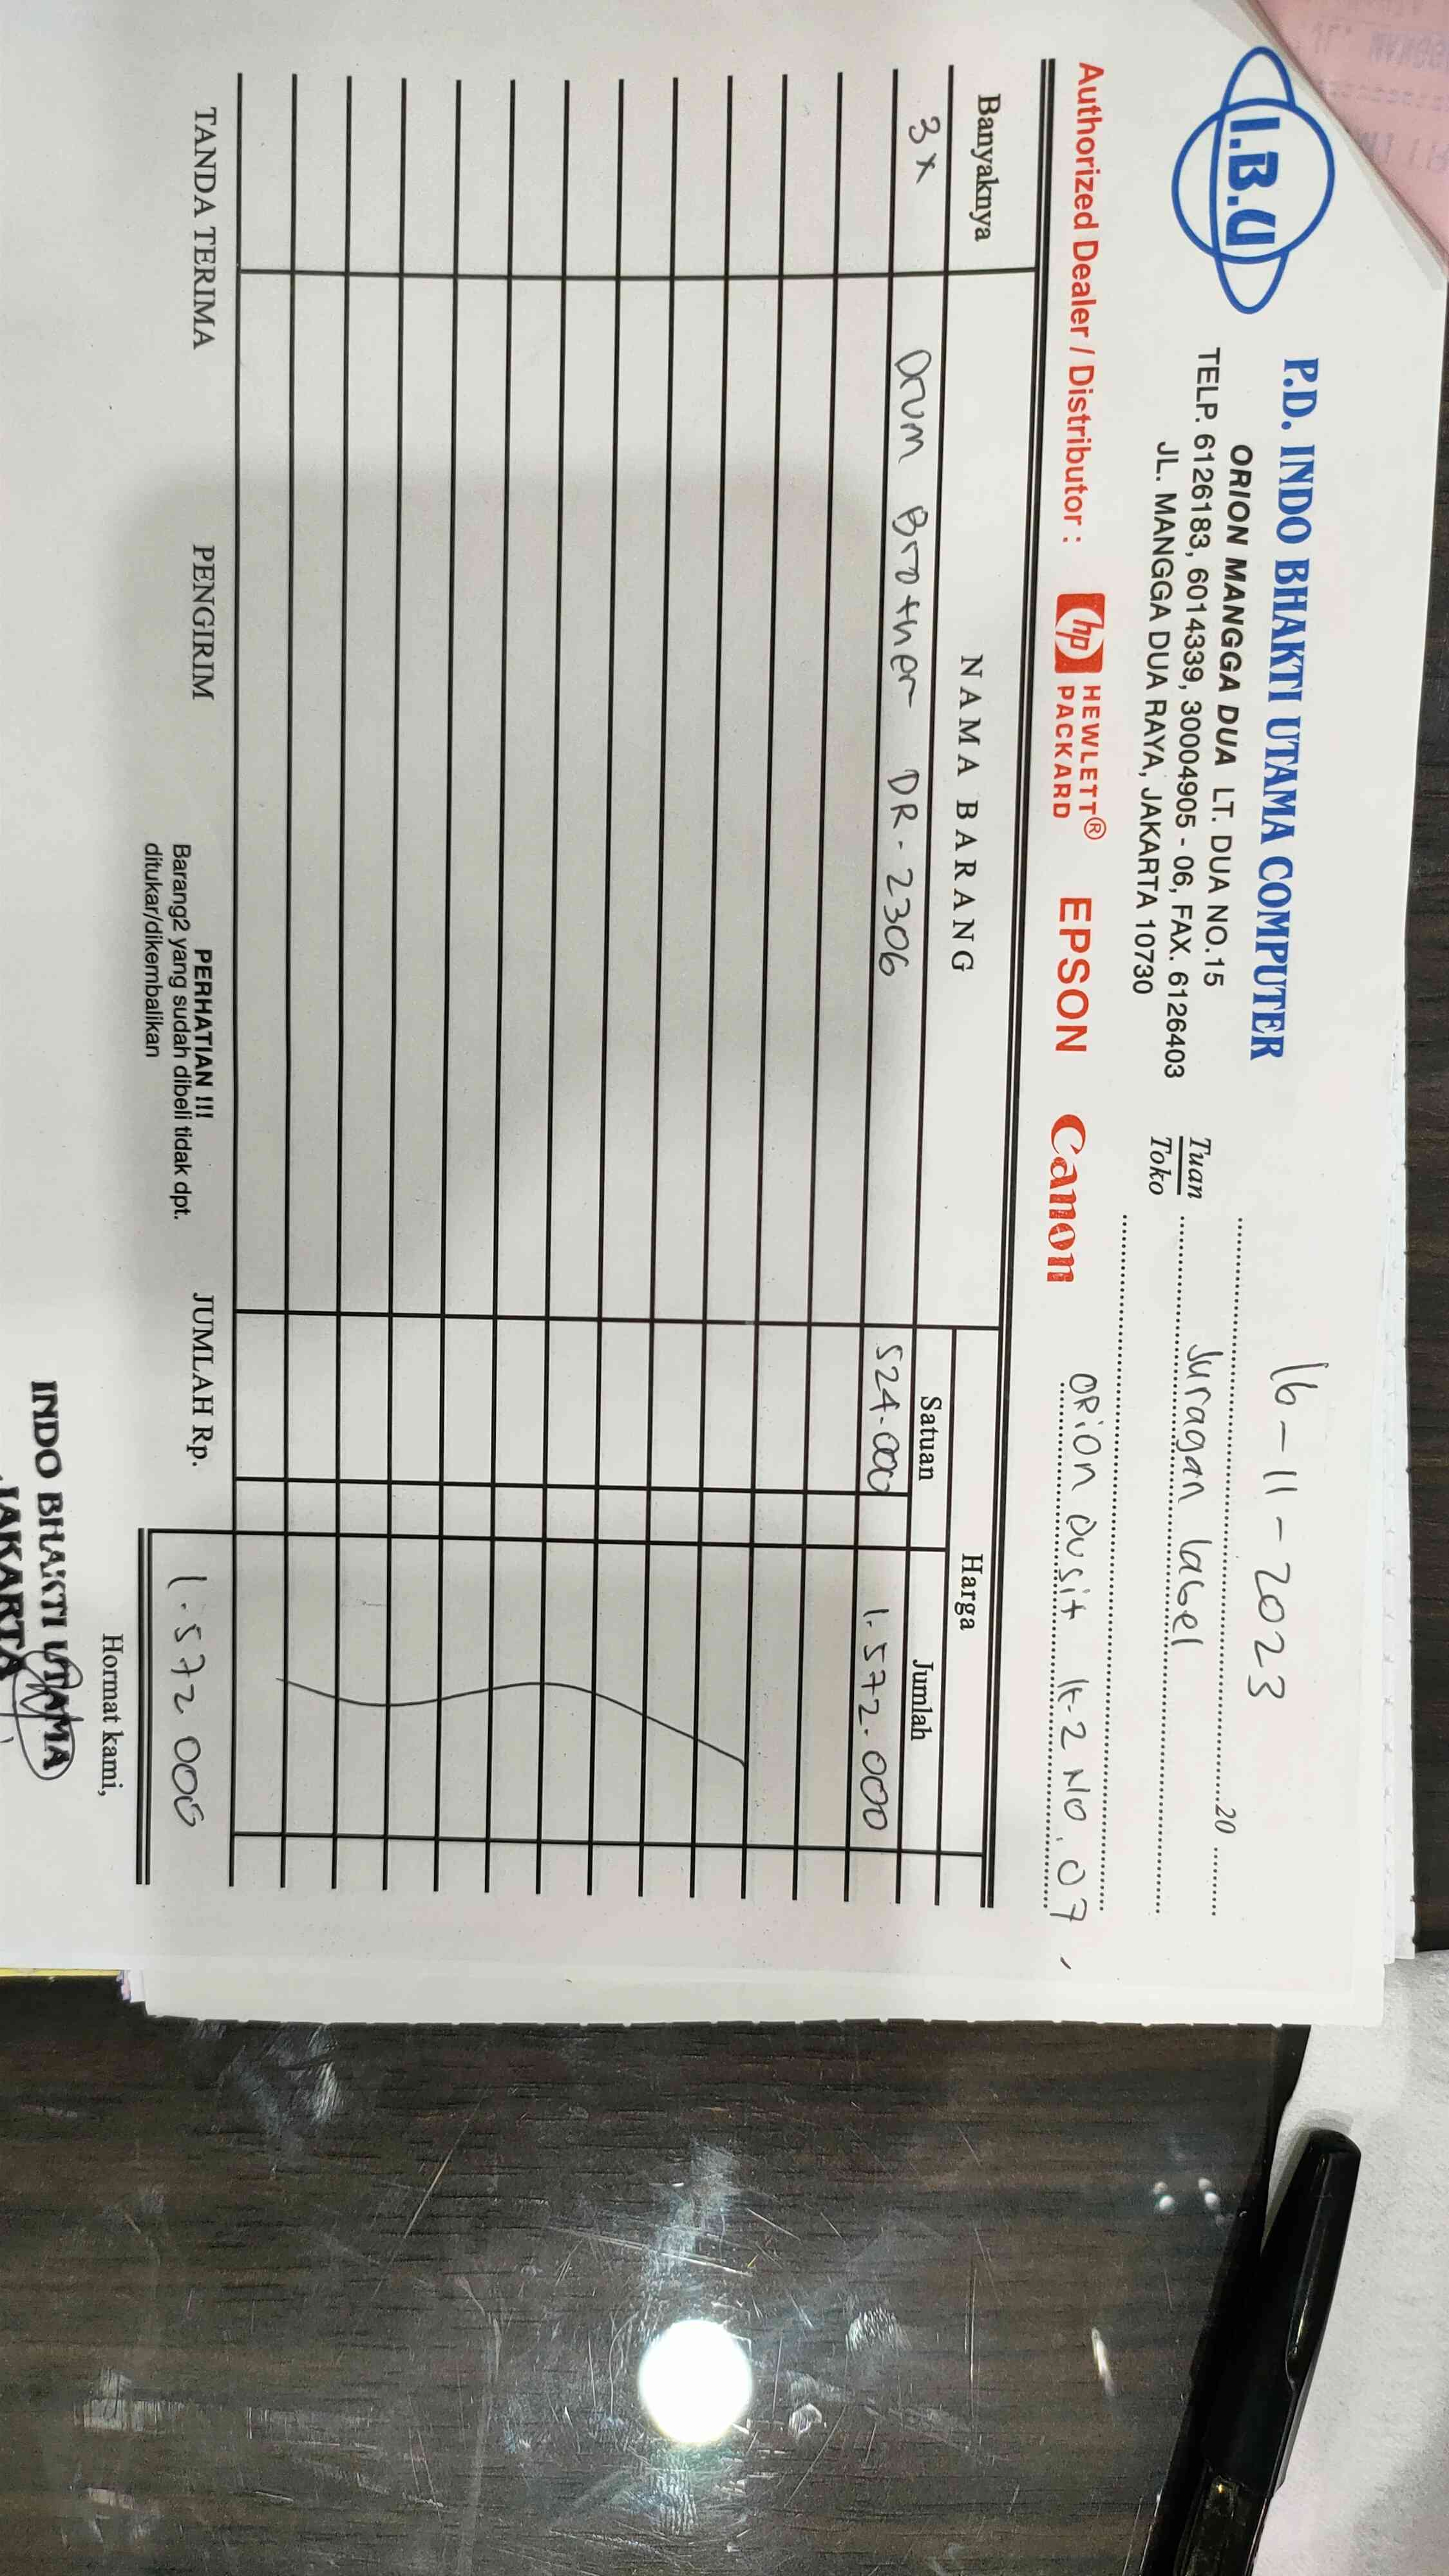 I.B.U
P.D. INDO BHAKTI UTAMA COMPUTER
ORION MANGGA DUA LT. DUA NO.15
TELP. 6126183, 6014339, 30004905 - 06, FAX. 6126403
JL. MANGGA DUA RAYA, JAKARTA 10730
16-11-2023
20
Tuan
Toko
Juragan label
Orion Dusit lt-2 No. 07,
Authorized Dealer / Distributor :
hp HEWLETT®
PACKARD
EPSON
Canon
Banyaknya
NAMA BARANG
Harga
Satuan
Jumlah
3x Drum Brother DR-2306 524.000 1.572.000
TANDA TERIMA
PENGIRIM
PERHATIAN !!!
Barang2 yang sudah dibeli tidak dpt.
ditukar/dikembalikan
JUMLAH Rp. 1.572 000
Hormat kami,
INDO BHAKTI UTAMA
JAKARTA